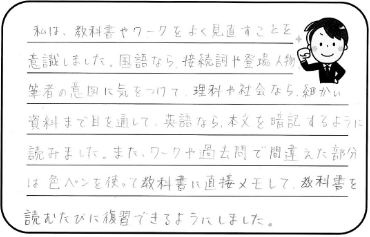 私は、教科書やワークをよく見直すことを
意識しました。国語なら、接続詞や登場人物
筆者の意図に気をつけて、理科や社会なら、細かい
資料まで目を通して、英語なら、本文を暗記するように
読みました。また、ワークや過去問で間違えた部分
は色ペンを使って教科書に直接メモして、教科書を
読むたびに復習できるようにしました。